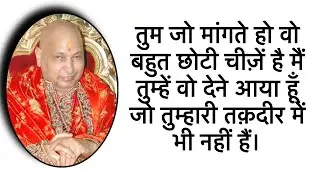 तुम जो मांगते हो वो
बहुत छोटी चीज़ें है मैं
तुम्हें वो देने आया हूँ
जो तुम्हारी तक़दीर में
भी नहीं हैं।